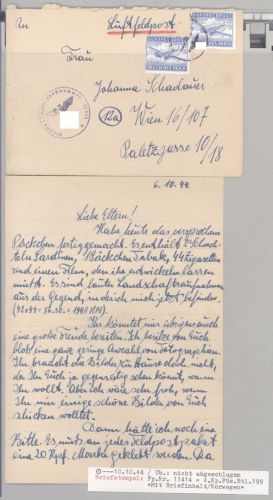 An
Luftfeldpost
Frau
Johanna Schadauer
12a
Wien 16/107
Paletzgasse 10/18
LUFTFELDPOST
DEUTSCHES REICH
6.10.44.
Liebe Eltern!
Habe heute das versprochene
Päckchen fertig gemacht. Es enthält 2 Schach-
teln Sardinen, 1 Päckchen Tabak, 44 Zigaretten
und einen Film, den ihr entwickeln lassen
müßt. Es sind lauter Landschaftsaufnahmen
aus der Gegend, in der ich mich jetzt befinde.
Ihr könntet mir übrigens auch
eine große Freude bereiten. Ich besitze von Euch
bloß eine ganz geringe Anzahl von Fotographien.
Ihr braucht die Bilder zu Hause doch nicht,
da Ihr Euch ja gegenseitig sehen könnt, wann
Ihr wollt. Aber ich wäre sehr froh, wenn
Ihr mir einige schöne Bilder von Euch
schicken wolltet.
Dann hätte ich noch eine
Bitte. Es muß an jedes Feldpostpaket
eine 20 Rpf. Marke geklebt werden. Da
---10.10.44 / Üb.: nicht abgeschlagen
Briefstempel: Fp.Nr. 11414 = 4.Kp.Füs.Btl.199
*Mit Briefinhalt/Norwegen*